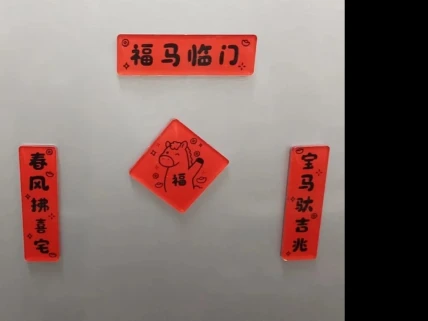 福马临门
宝马驮吉兆
福
春风拂喜宅